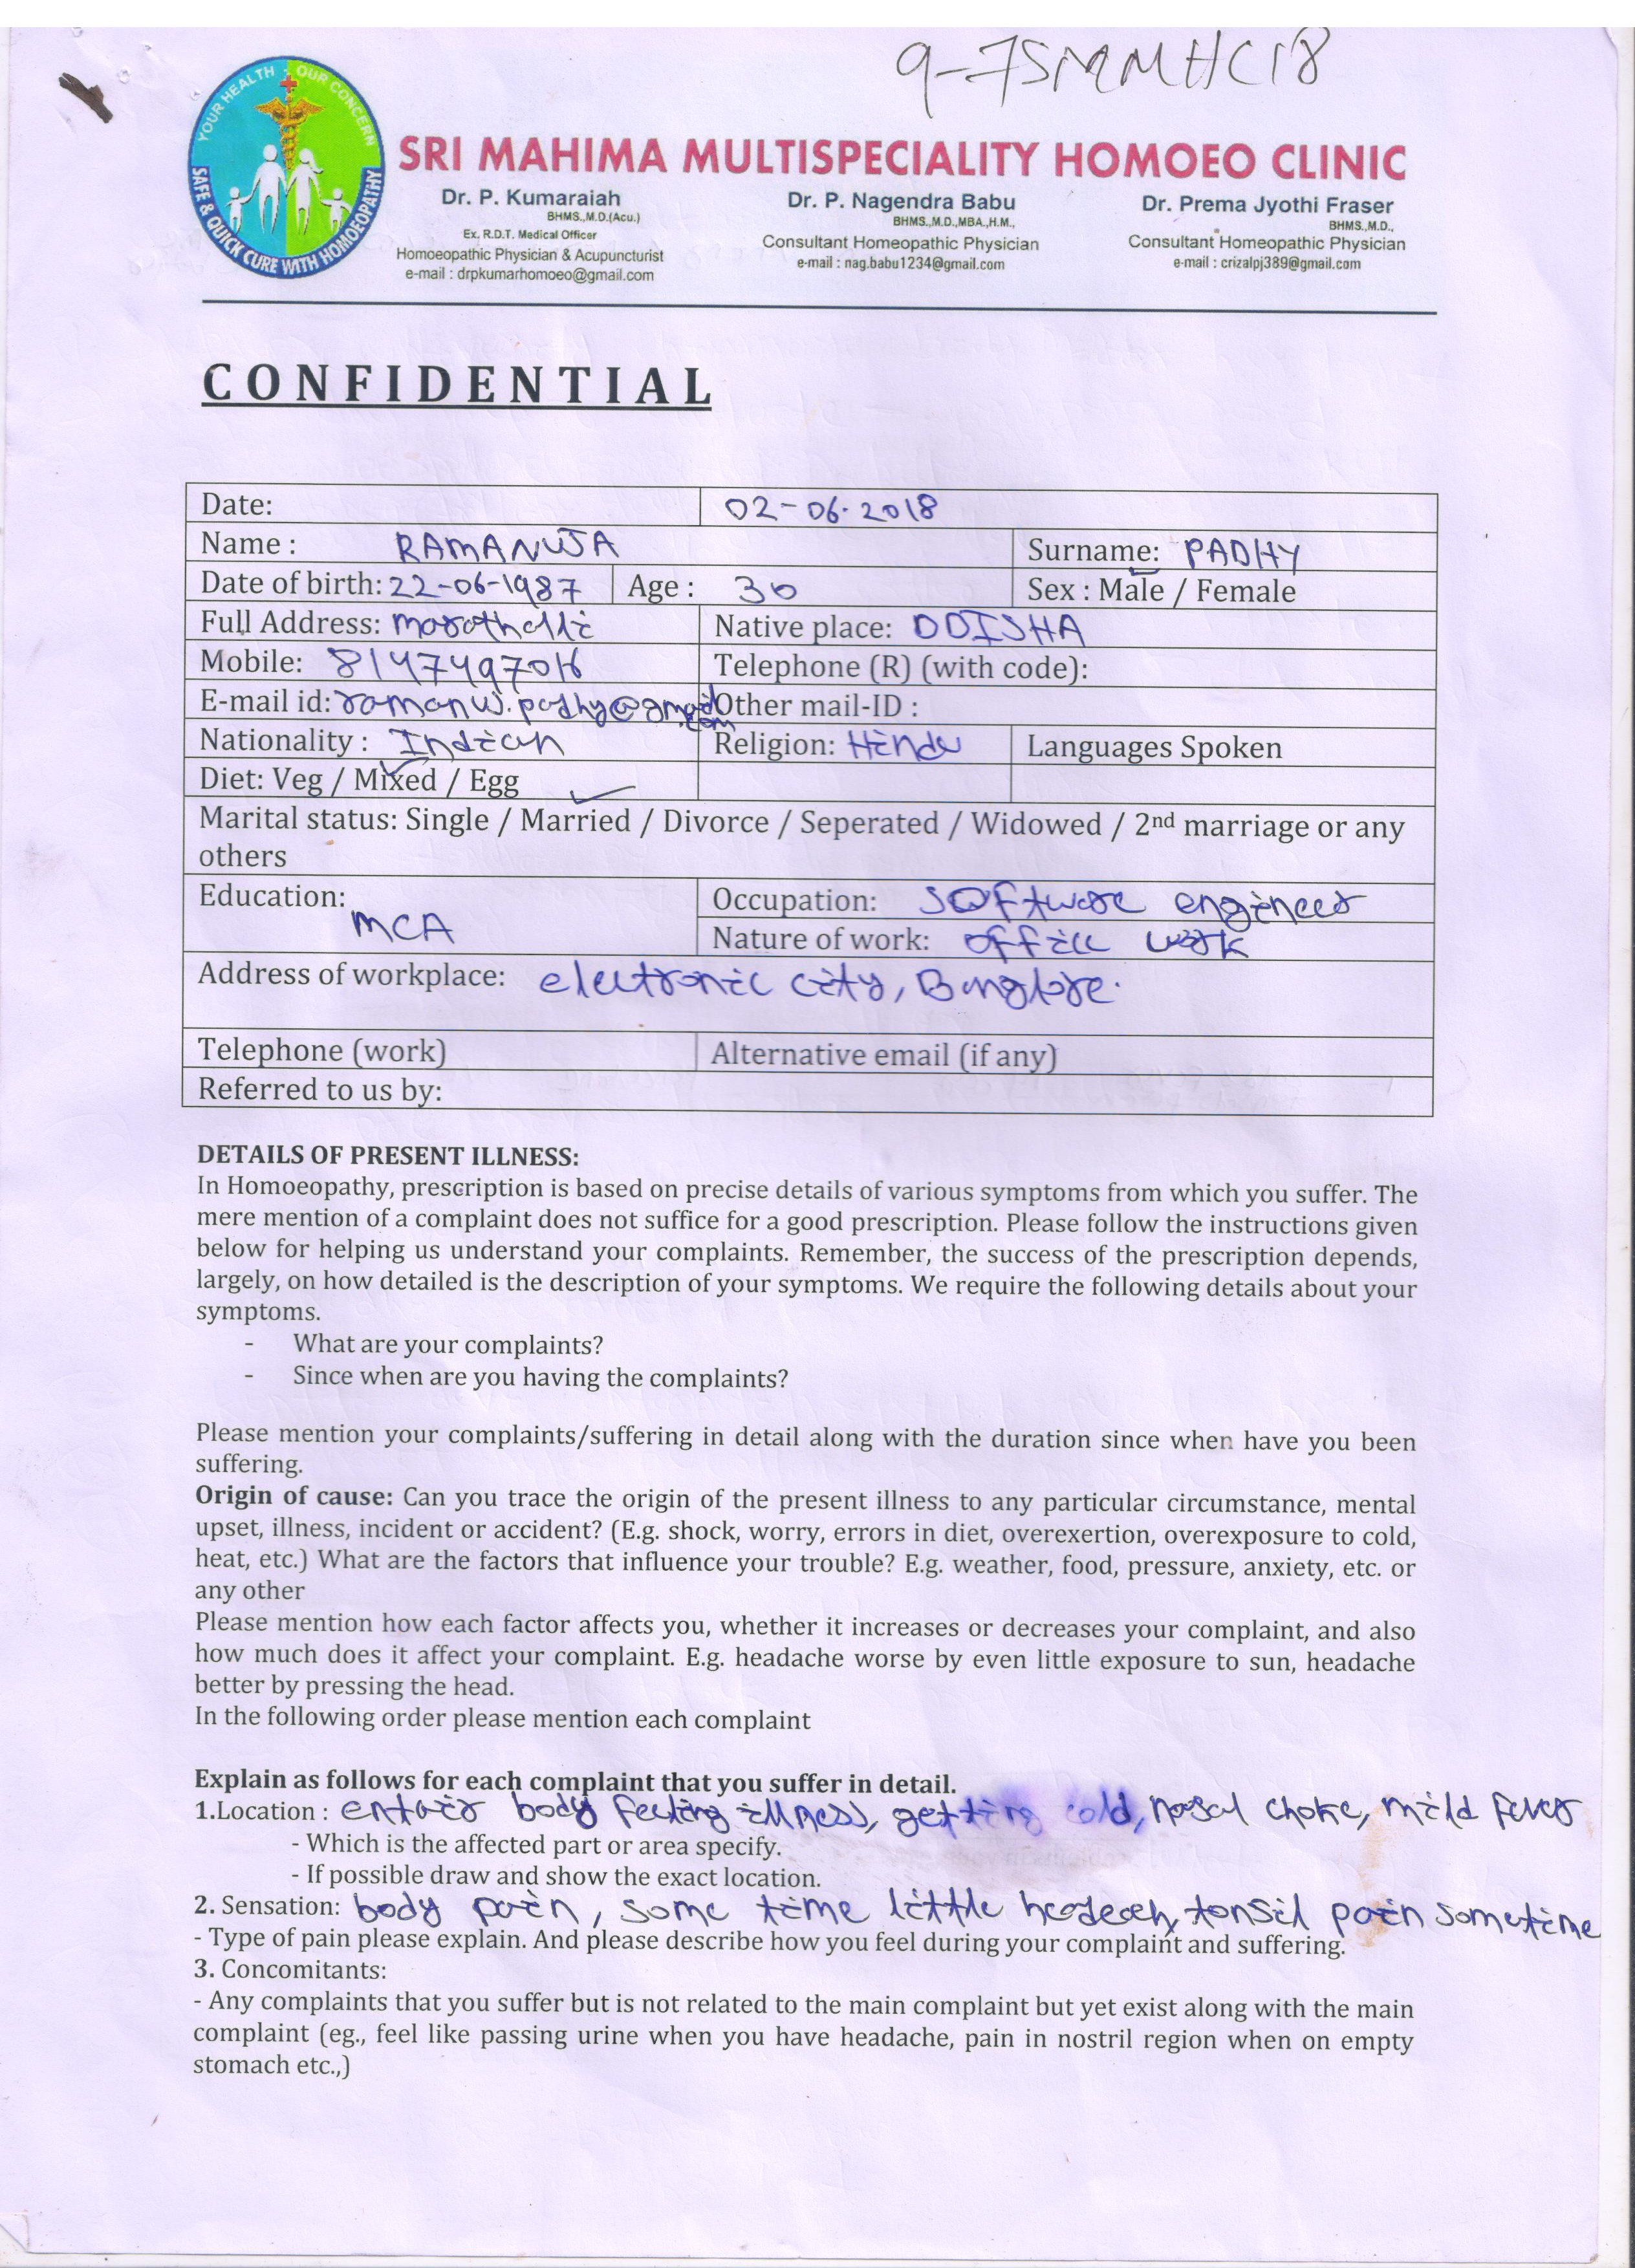 9-75MMHC18
YOUR HEALTH - OUR CONCERN
SAFE & QUICK CURE WITH HOMOEOPATHY
SRI MAHIMA MULTISPECIALITY HOMOEO CLINIC
Dr. P. Kumaraiah
BHMS.,M.D.(Acu.)
Ex. R.D.T. Medical Officer
Homoeopathic Physician & Acupuncturist
e-mail : drpkumarhomoeo@gmail.com
Dr. P. Nagendra Babu
BHMS.,M.D.,MBA.,H.M.,
Consultant Homeopathic Physician
e-mail : nag.babu1234@gmail.com
Dr. Prema Jyothi Fraser
BHMS.,M.D.,
Consultant Homeopathic Physician
e-mail : crizalpj389@gmail.com
CONFIDENTIAL
Date: 02-06-2018
Name : RAMANUJA Surname: PADHY
Date of birth: 22-06-1987 Age : 30 Sex : Male / Female
Full Address: marathalli Native place: ODISHA
Mobile: 8147497016 Telephone (R) (with code):
E-mail id: ramanuj.padhy@gmail.com Other mail-ID :
Nationality : Indian Religion: Hindu Languages Spoken
Diet: Veg / Mixed / Egg
Marital status: Single / Married / Divorce / Seperated / Widowed / 2nd marriage or any
others
Education: MCA Occupation: software engineer
Nature of work: office work
Address of workplace: electronic city, Banglore.
Telephone (work) Alternative email (if any)
Referred to us by:
DETAILS OF PRESENT ILLNESS:
In Homoeopathy, prescription is based on precise details of various symptoms from which you suffer. The
mere mention of a complaint does not suffice for a good prescription. Please follow the instructions given
below for helping us understand your complaints. Remember, the success of the prescription depends,
largely, on how detailed is the description of your symptoms. We require the following details about your
symptoms.
- What are your complaints?
- Since when are you having the complaints?
Please mention your complaints/suffering in detail along with the duration since when have you been
suffering.
Origin of cause: Can you trace the origin of the present illness to any particular circumstance, mental
upset, illness, incident or accident? (E.g. shock, worry, errors in diet, overexertion, overexposure to cold,
heat, etc.) What are the factors that influence your trouble? E.g. weather, food, pressure, anxiety, etc. or
any other
Please mention how each factor affects you, whether it increases or decreases your complaint, and also
how much does it affect your complaint. E.g. headache worse by even little exposure to sun, headache
better by pressing the head.
In the following order please mention each complaint
Explain as follows for each complaint that you suffer in detail.
1.Location : body feeling illness, getting cold, nasal choke, mild fever
- Which is the affected part or area specify.
- If possible draw and show the exact location.
2. Sensation: body pain, some time little headech, tonsil pain sometime
- Type of pain please explain. And please describe how you feel during your complaint and suffering.
3. Concomitants:
- Any complaints that you suffer but is not related to the main complaint but yet exist along with the main
complaint (eg., feel like passing urine when you have headache, pain in nostril region when on empty
stomach etc.,)